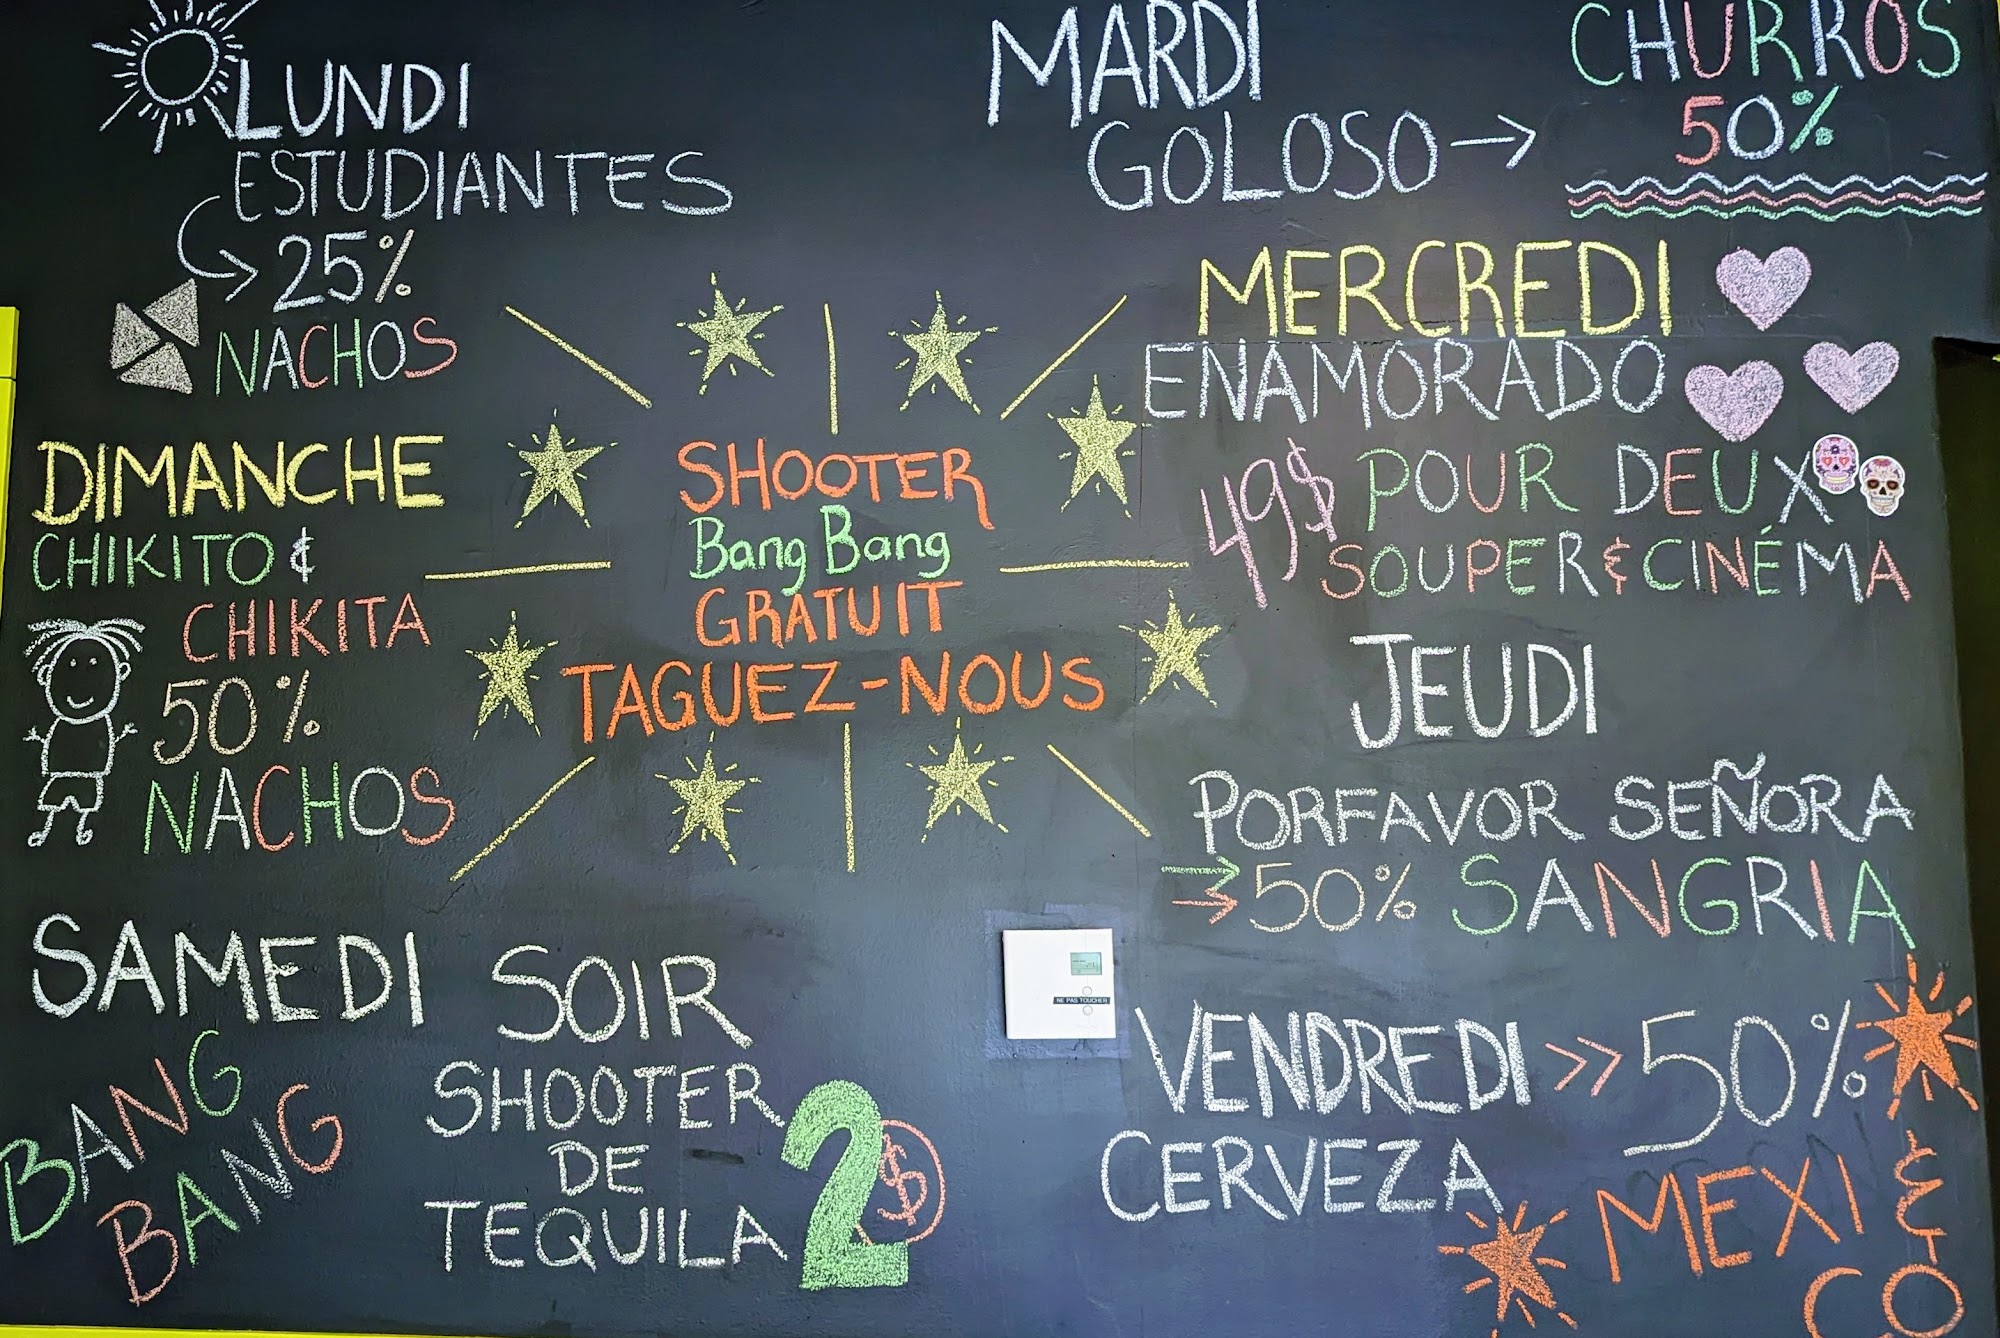 LUNDI
ESTUDIANTES
25%
NACHOS
MARDI
GOLOSO
CHURROS
50%
MERCREDI
ENAMORADO
49$ POUR DEUX
SOUPER & CINÉMA
DIMANCHE
CHIKITO &
CHIKITA
50%
NACHOS
SHOOTER
Bang Bang
GRATUIT
TAGUEZ-NOUS
JEUDI
PORFAVOR SEÑORA
50% SANGRIA
SAMEDI SOIR
BANG
BANG
SHOOTER
DE
TEQUILA
2$
NE PAS TOUCHER
VENDREDI >> 50%
CERVEZA
MEXI &
CO